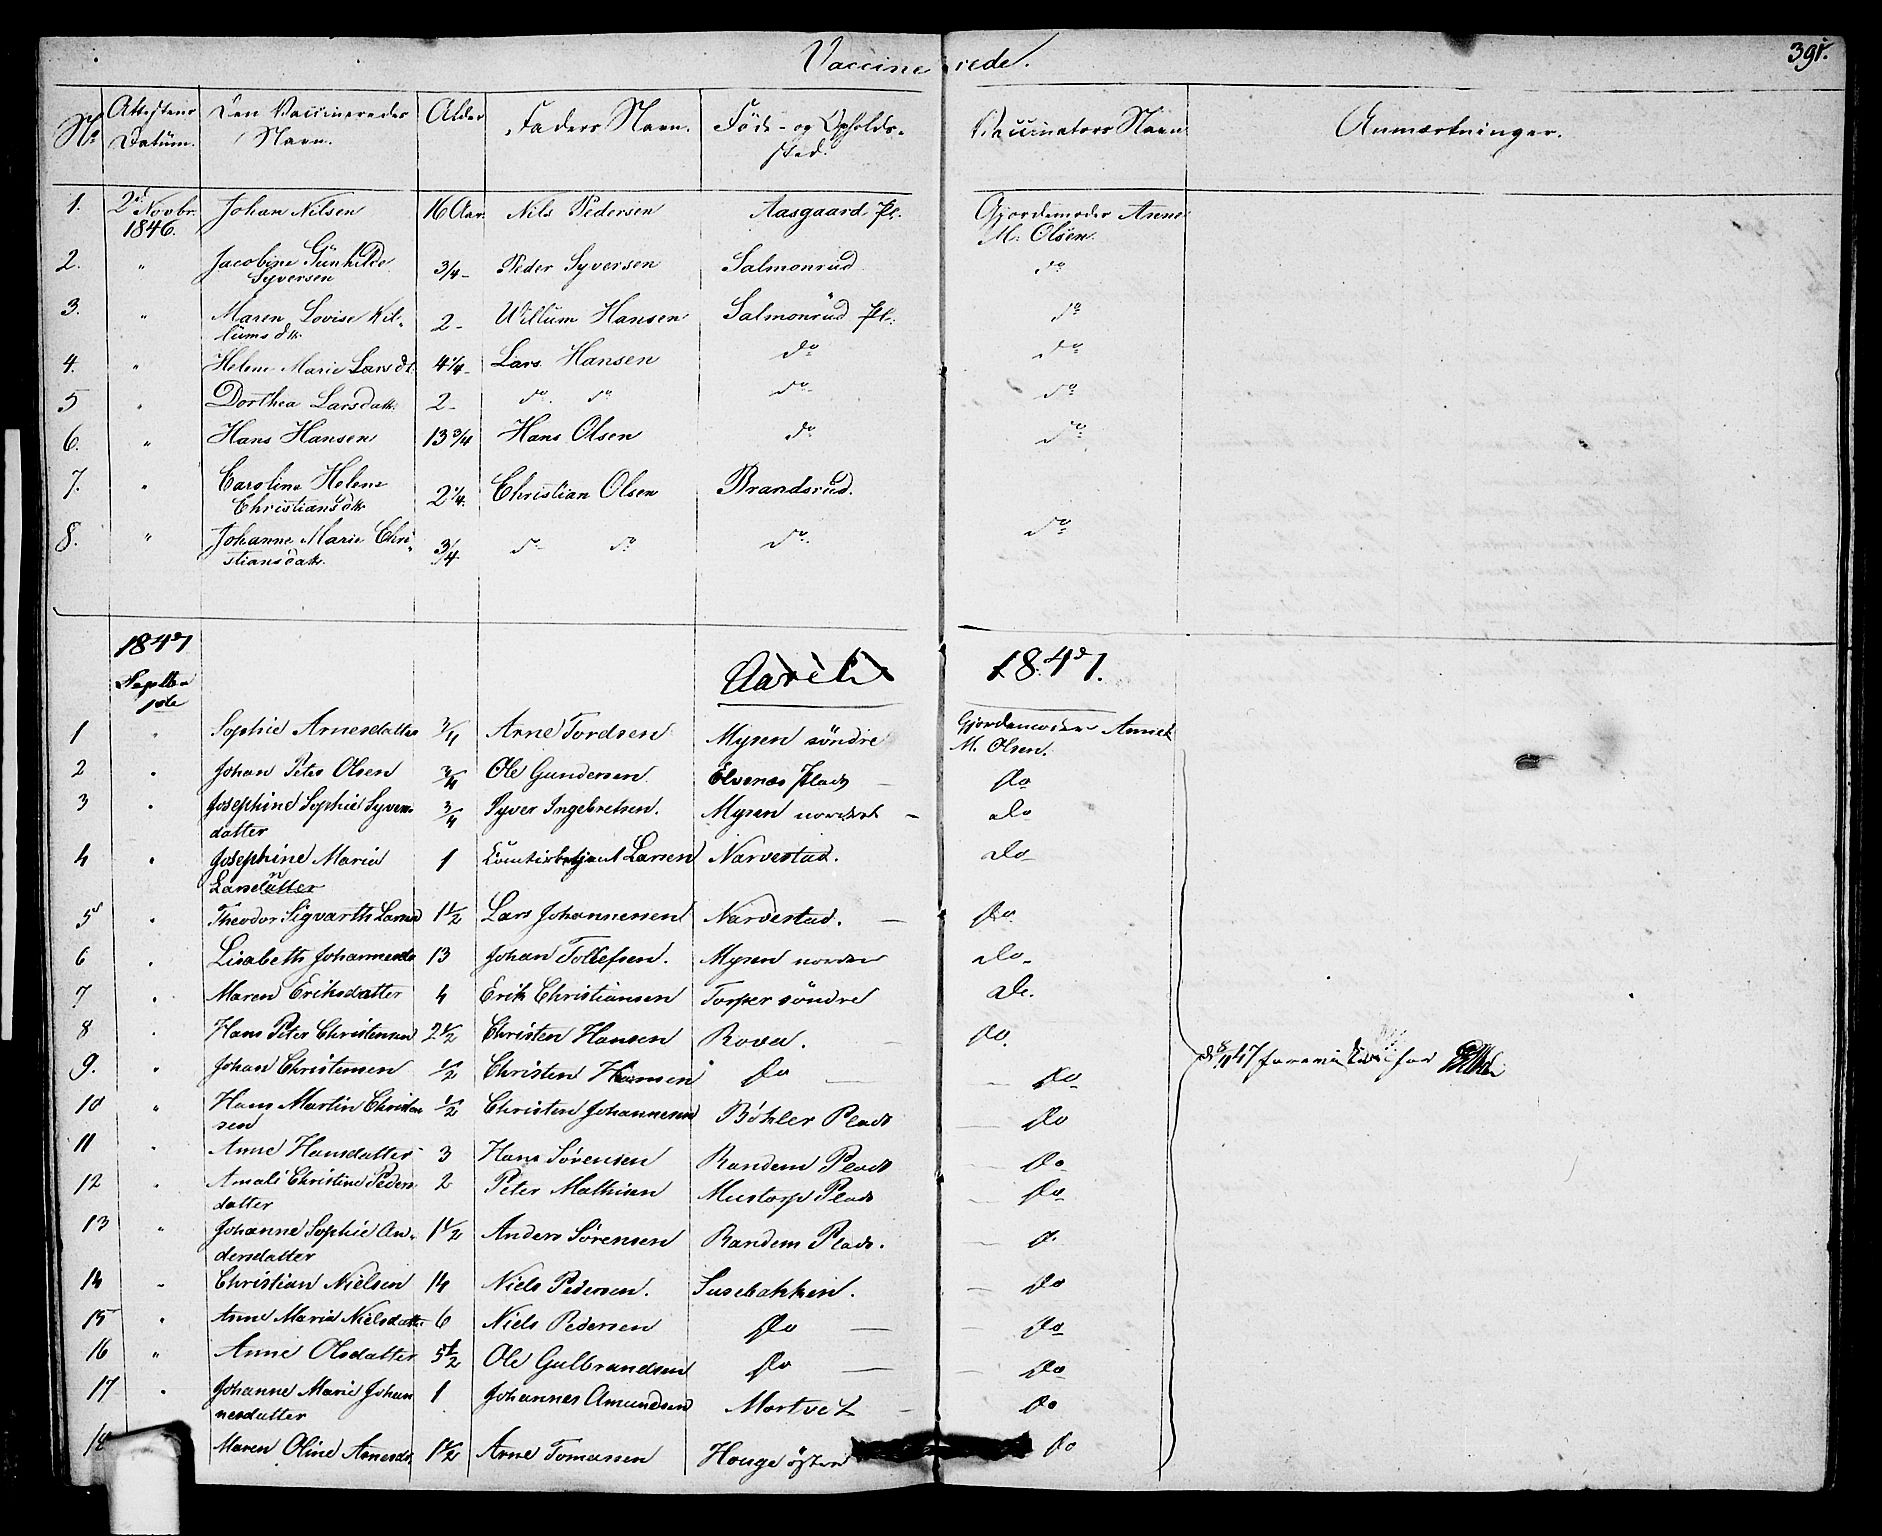 Vaccinerede. 391.
No Attestens Datum. Den Vaccineredes Navn. Alder Faders Navn. Føde- og Opholds-sted. Vaccinators Navn Anmærkninger.
1. 2d Novbr. 1846. Johan Nilsen 16 Aar. Nils Pedersen Aasgaard Pl. Gjordemoder Anne M. Olsen.
2. " Jacobine Gunhilde Syversen 3/4 - Peder Syversen Salmonrud do
3. " Maren Lovise Willumsdtr. 2 - Willum Hansen Salmonrud Pl. do
4. " Helene Marie Larsdt. 4 1/4 - Lars Hansen do do
5 " Dorthea Larsdatt. 2 - do do do do
6. " Hans Hansen 13 3/4 Hans Olsen do do
7. " Caroline Helene Christiansdtr. 2 1/4. Christian Olsen Brandsrud.
8. " Johanne Marie Christiansdatr. 3/4 do do do do
1847 Aaret 1847.
Septbr 1ste
1 " Sophie Arnesdatter 3/4 Arne Tordsen Mysen søndre Gjordemoder Anne M. Olsen.
2 " Johan Peter Olsen 3/4 Ole Gundersen Elvenæs Plads - Do
3 " Josephine Sophie Syversdatter 3/4 Syver Ingebretsen. Mysen nordre - Do
4 " Josephine Maria Larsen 1 Larsen Narvestad. Do
5 " Theodor Sigvarth Larsen 1 1/2 Lars Johannessen Narvestad. - Do.
6 " Lisabeth Johannesdr 13 Johan Tollefsen. Mysen nordre Do
7 " Maren Eriksdatter 4 Erik Christiansen Torper søndre Do.
8 " Hans Peter Christensen 2 1/2 Christen Hansen Rova. - Do.
9. " Johan Christensen 1/2 Christen Hansen Do - - Do
10 " Hans Martin Christensen 1/2 Christen Johannesen Bøhler Plads - Do
11 " Anne Hansdatter 3 Hans Sørensen Randem Plads - Do
12 " Amali Christine Pedersdatter 2 Peter Mathisen Mustorp Plads - Do
13 " Johanne Sophie Andersdatter 1 1/2 Anders Sørensen Randem Plads. - D.
14 " Christian Nielsen 14 Niels Pedersen. Susebakken. - Do
15 " Anne Maria Nielsdatter 6 Niels Pedersen Do - - Do
16 " Anne Olsdatter 5 1/2 Ole Gulbrandsen Do - - Do
17 " Johanne Marie Johannesdatter 1 Johannes Amundsen Mortvet - Do
18 Maren Oline Arnesdr. 1 1/2 Arne Tomassen Houge østre Do